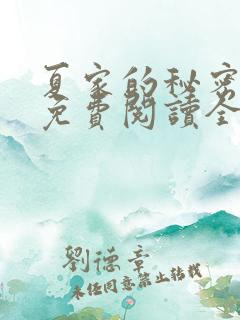 夏家的秘密
免費閱讀全
劉德章
未經同意禁止轉載